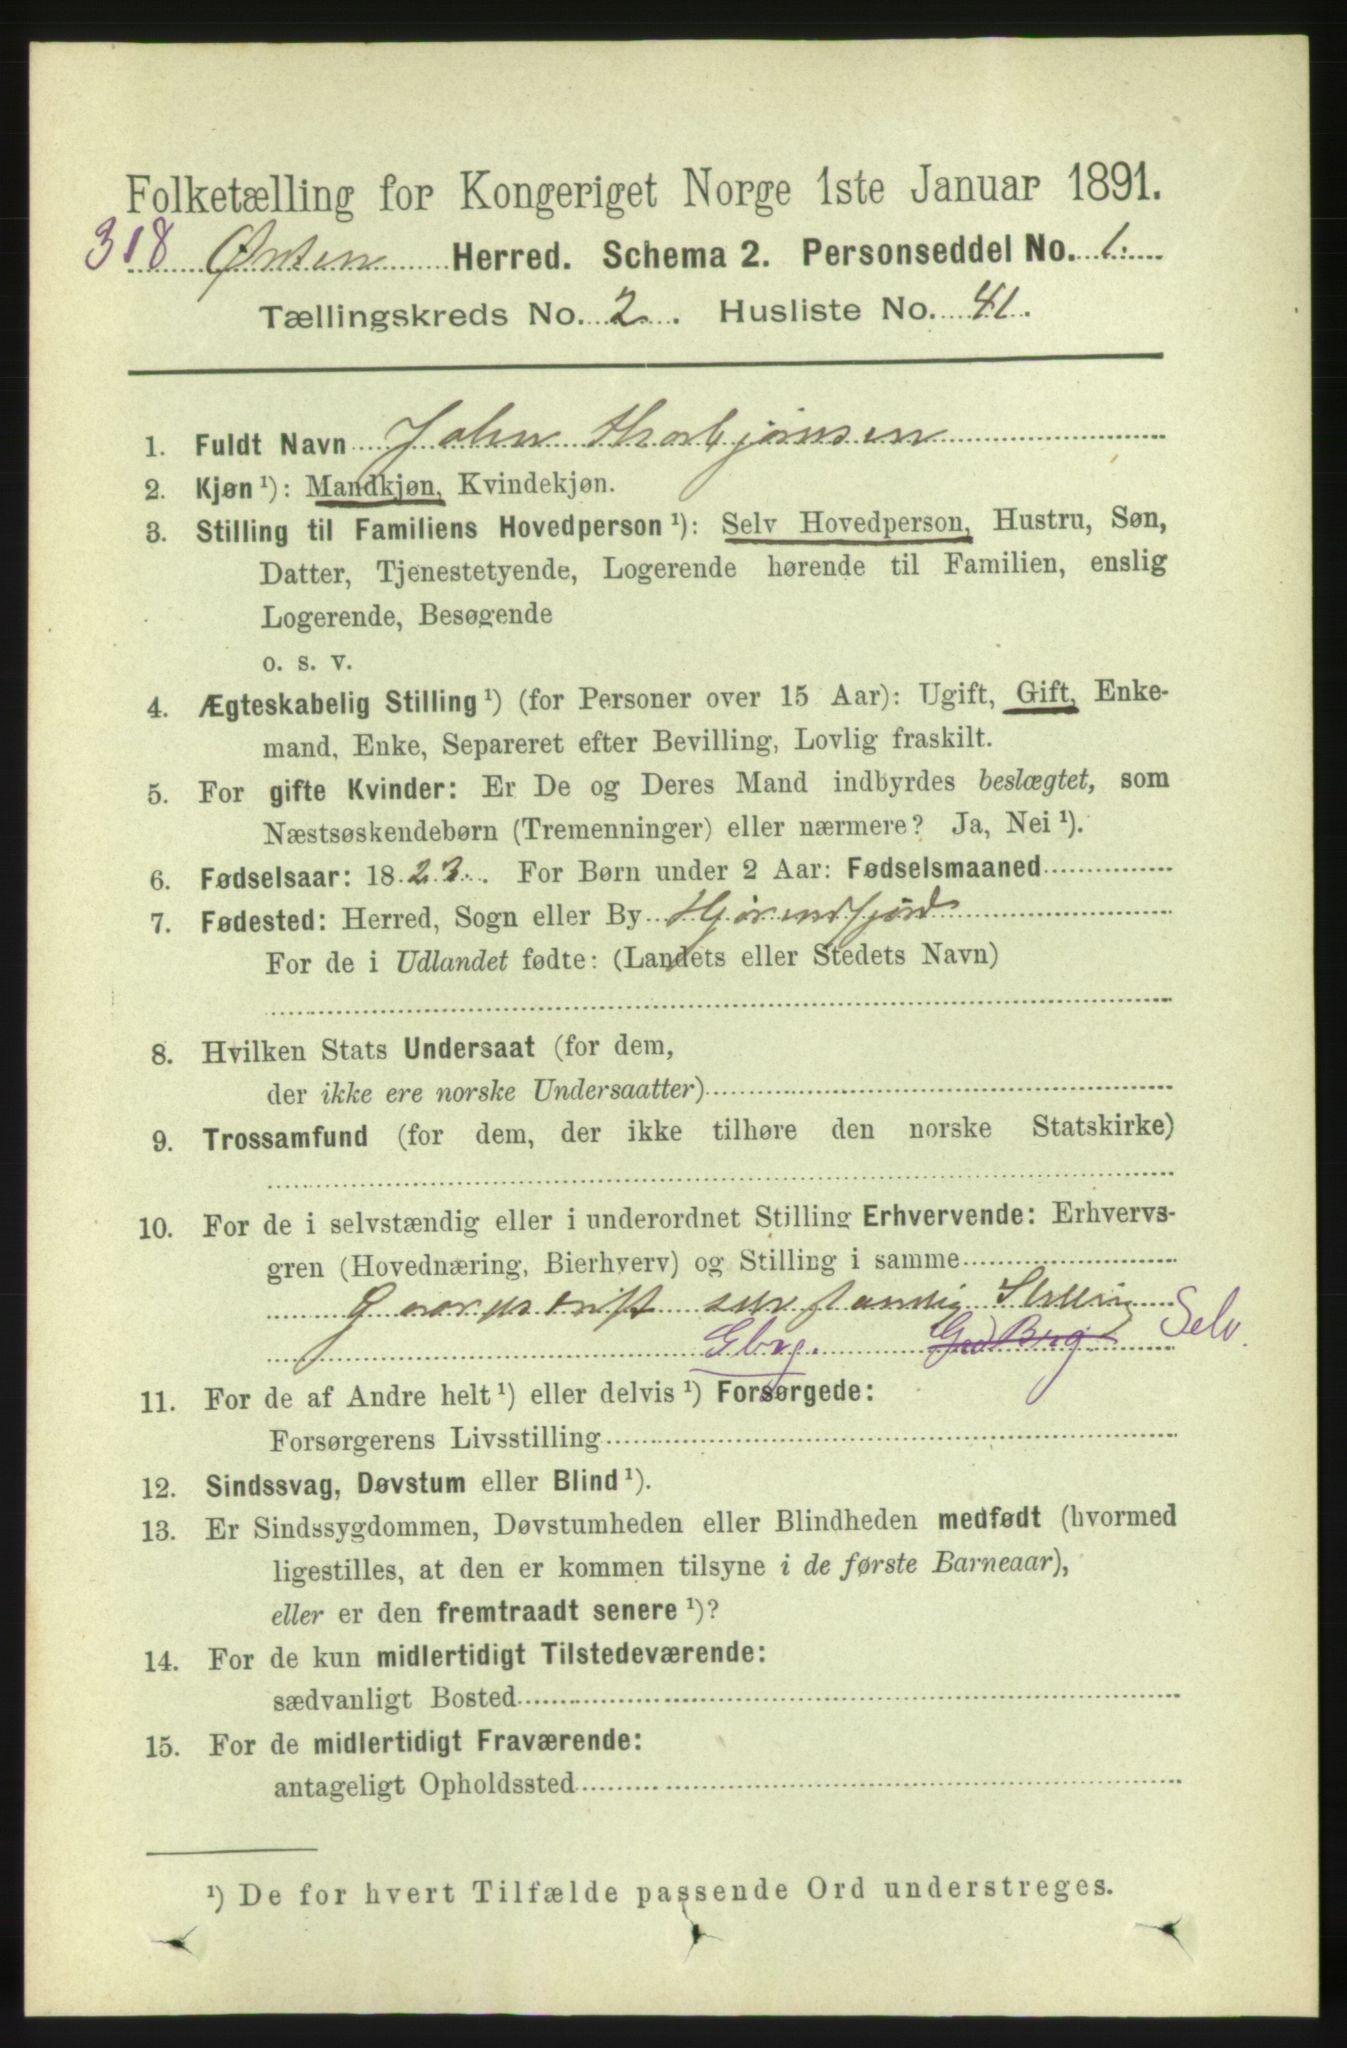 Folketælling for Kongeriget Norge 1ste Januar 1891.
318 Ørsten Herred. Schema 2. Personseddel No. 1.
Tællingskreds No. 2. Husliste No. 41.
1. Fuldt Navn John Thorbjørnsen
2. Kjøn ¹): Mandkjøn, Kvindekjøn.
3. Stilling til Familiens Hovedperson ¹): Selv Hovedperson, Hustru, Søn,
Datter, Tjenestetyende, Logerende hørende til Familien, enslig
Logerende, Besøgende
o. s. v.
4. Ægteskabelig Stilling ¹) (for Personer over 15 Aar): Ugift, Gift, Enke-
mand, Enke, Separeret efter Bevilling, Lovlig fraskilt.
5. For gifte Kvinder: Er De og Deres Mand indbyrdes beslægtet, som
Næstsøskendebørn (Tremenninger) eller nærmere? Ja, Nei ¹).
6. Fødselsaar: 1823. For Børn under 2 Aar: Fødselsmaaned
7. Fødested: Herred, Sogn eller By Hjørendfjord
For de i Udlandet fødte: (Landets eller Stedets Navn)
8. Hvilken Stats Undersaat (for dem,
der ikke ere norske Undersaatter)
9. Trossamfund (for dem, der ikke tilhøre den norske Statskirke)
10. For de i selvstændig eller i underordnet Stilling Erhvervende: Erhvervs-
gren (Hovednæring, Bierhverv) og Stilling i samme
Gaardsdrift selvstændig Stilling
Gbrg. Selv.
11. For de af Andre helt ¹) eller delvis ¹) Forsørgede:
Forsørgerens Livsstilling
12. Sindssvag, Døvstum eller Blind ¹).
13. Er Sindssygdommen, Døvstumheden eller Blindheden medfødt (hvormed
ligestilles, at den er kommen tilsyne i de første Barneaar),
eller er den fremtraadt senere ¹)?
14. For de kun midlertidigt Tilstedeværende:
sædvanligt Bosted
15. For de midlertidigt Fraværende:
antageligt Opholdssted
¹) De for hvert Tilfælde passende Ord understreges.